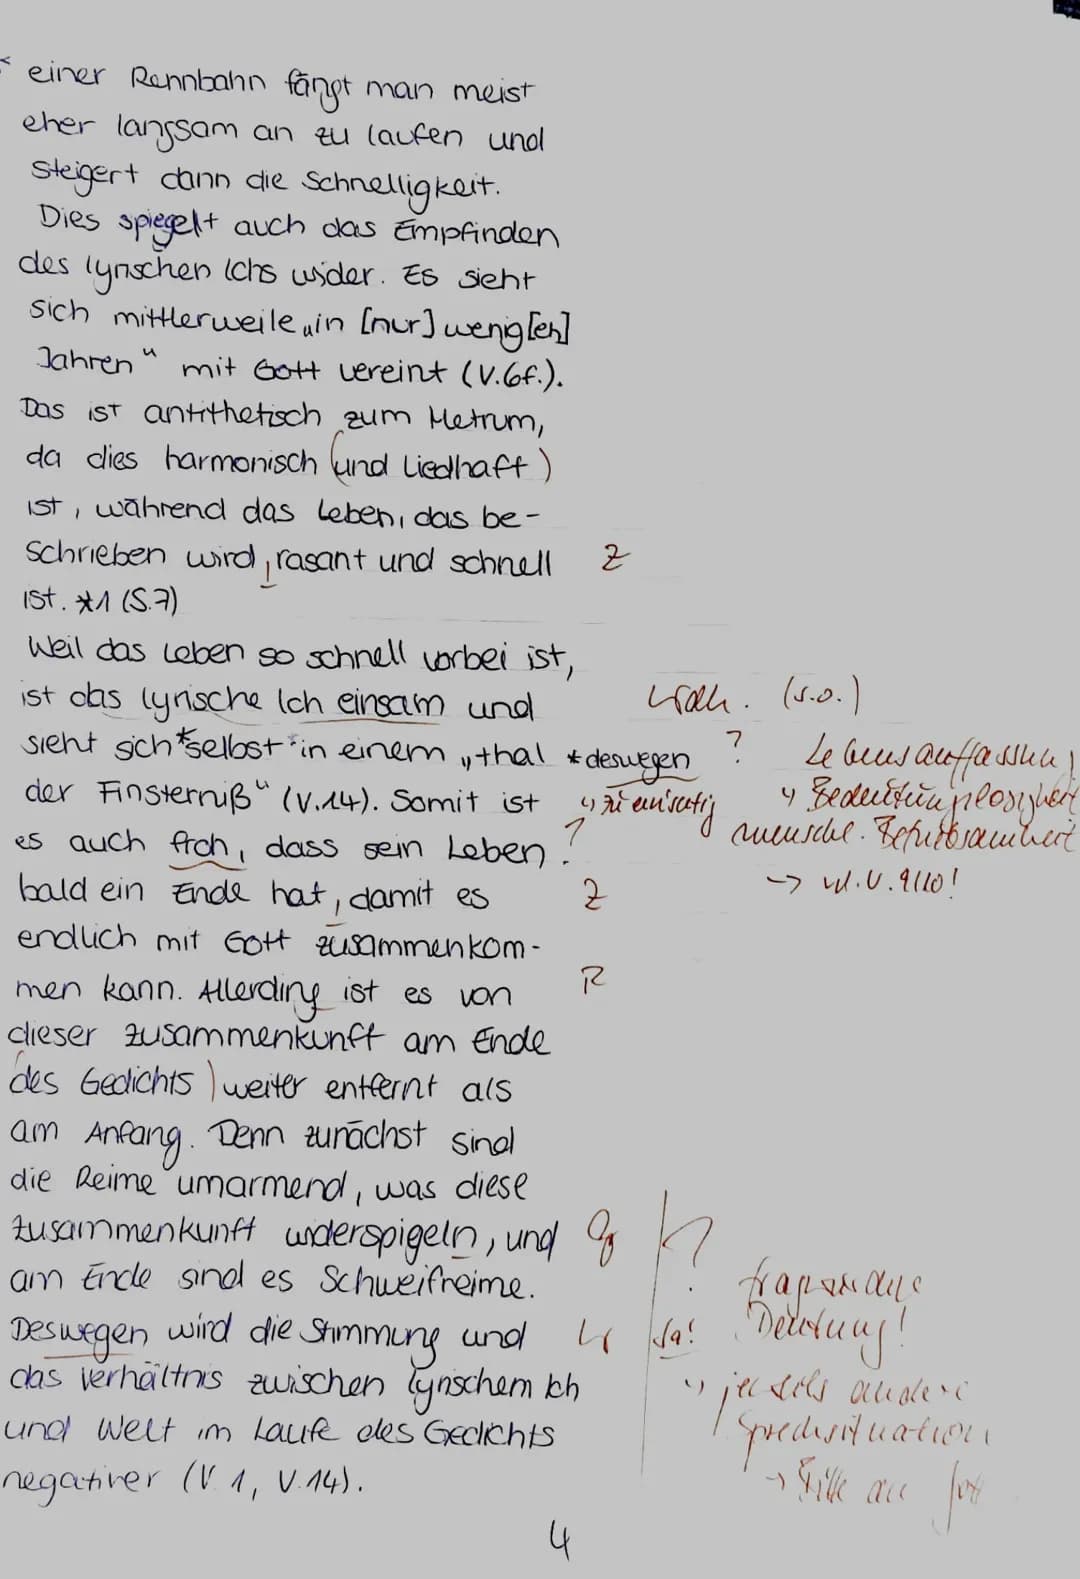 einer Rennbahn fängt man meist
eher langsam an zu laufen und
steigert dann die Schnelligkeit.
Dies spiegelt auch das Empfinden
des lyrischen Ichs wider. Es sieht
sich mittlerweile „in [nur] wenig[en]
Jahren" mit Gott vereint (V.6f.).
Das ist antithetisch zum Metrum,
da dies harmonisch (und Liedhaft)
ist, während das Leben, das be-
schrieben wird, rasant und schnell Z
ist. *1 (S.7)
Weil das Leben so schnell vorbei ist,
ist das lyrische Ich einsam und (s.o.)
sieht sich *selbst in einem „thal *deswegen ? Lebensauffassung
der Finsterniß" (V.14). Somit ist zu einseitig Bedeutungslosigkeit
es auch froh, dass sein Leben ? menschl.
bald ein Ende hat, damit es Z → V. 9/10!
endlich mit Gott zusammenkom-
men kann. Allerding ist es von R
dieser Zusammenkunft am Ende
des Gedichts) weiter entfernt als
am Anfang. Denn zunächst sind
die Reime umarmend, was diese
Zusammenkunft widerspigeln, und ?
am Ende sind es Schweifreime. fragwürdige
Deswegen wird die Stimmung und Sa! Deutung!
das Verhältnis zwischen lyrischem Ich jeweils andere
und Welt im Laufe des Gedichts Sprechsituation
negativer (V. 1, V.14). → Bitte an Gott
4